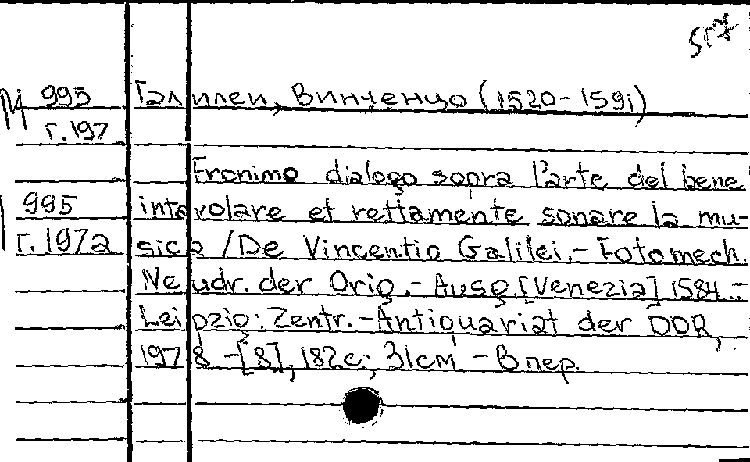 995 Галилеи, Винченцо (1520-1591)
г.197
Fronimo dialogo sopra l'arte del bene
995 intavolare et rettamente sonare la mu-
г.197а sica / De Vincentio Galilei.- Fotomech.
Neudr. der Orig.- Ausg. [Venezia] 1584.-
Leipzig: Zentr.-Antiquariat der DDR,
1978 -[8], 182 с; 31см - В пер.